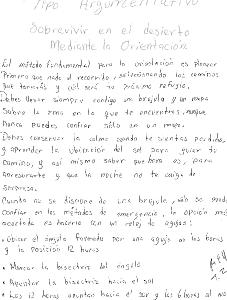 Tipo Argumentativo
Sobrevivir en el desierto
Mediante la Orientación
El método fundamental para la orientación es planear
Primero que nada el recorrido, seleccionando los caminos
que tomarás y cuál será tu próximo refugio.
Debes llevar siempre contigo un brujula y un mapa
Sobre la zona en la que te encuentras, aunque
Nunca puedes confiar sólo en un mapa.
Debes conservar la calma cuando te sientas perdido,
y aprender la ubicación del sol para guiar tu
Camino, y así mismo saber que hora es, para
apresurarte y que la noche no te caiga de
sorpresa.
Cuando no se dispone de una brujula, sólo se puede
Confiar en los métodos de emergencia, la opción más
acertada es hacerlo con un reloj de agujas:
• Ubicar el ángulo formado por una aguja en las horas
y la posición 12 horas
• Marcar la bisectriz del angulo
• Apuntar la bisectriz hacia el sol
• Las 12 horas apuntan hacia el sur y las 6 horas al no